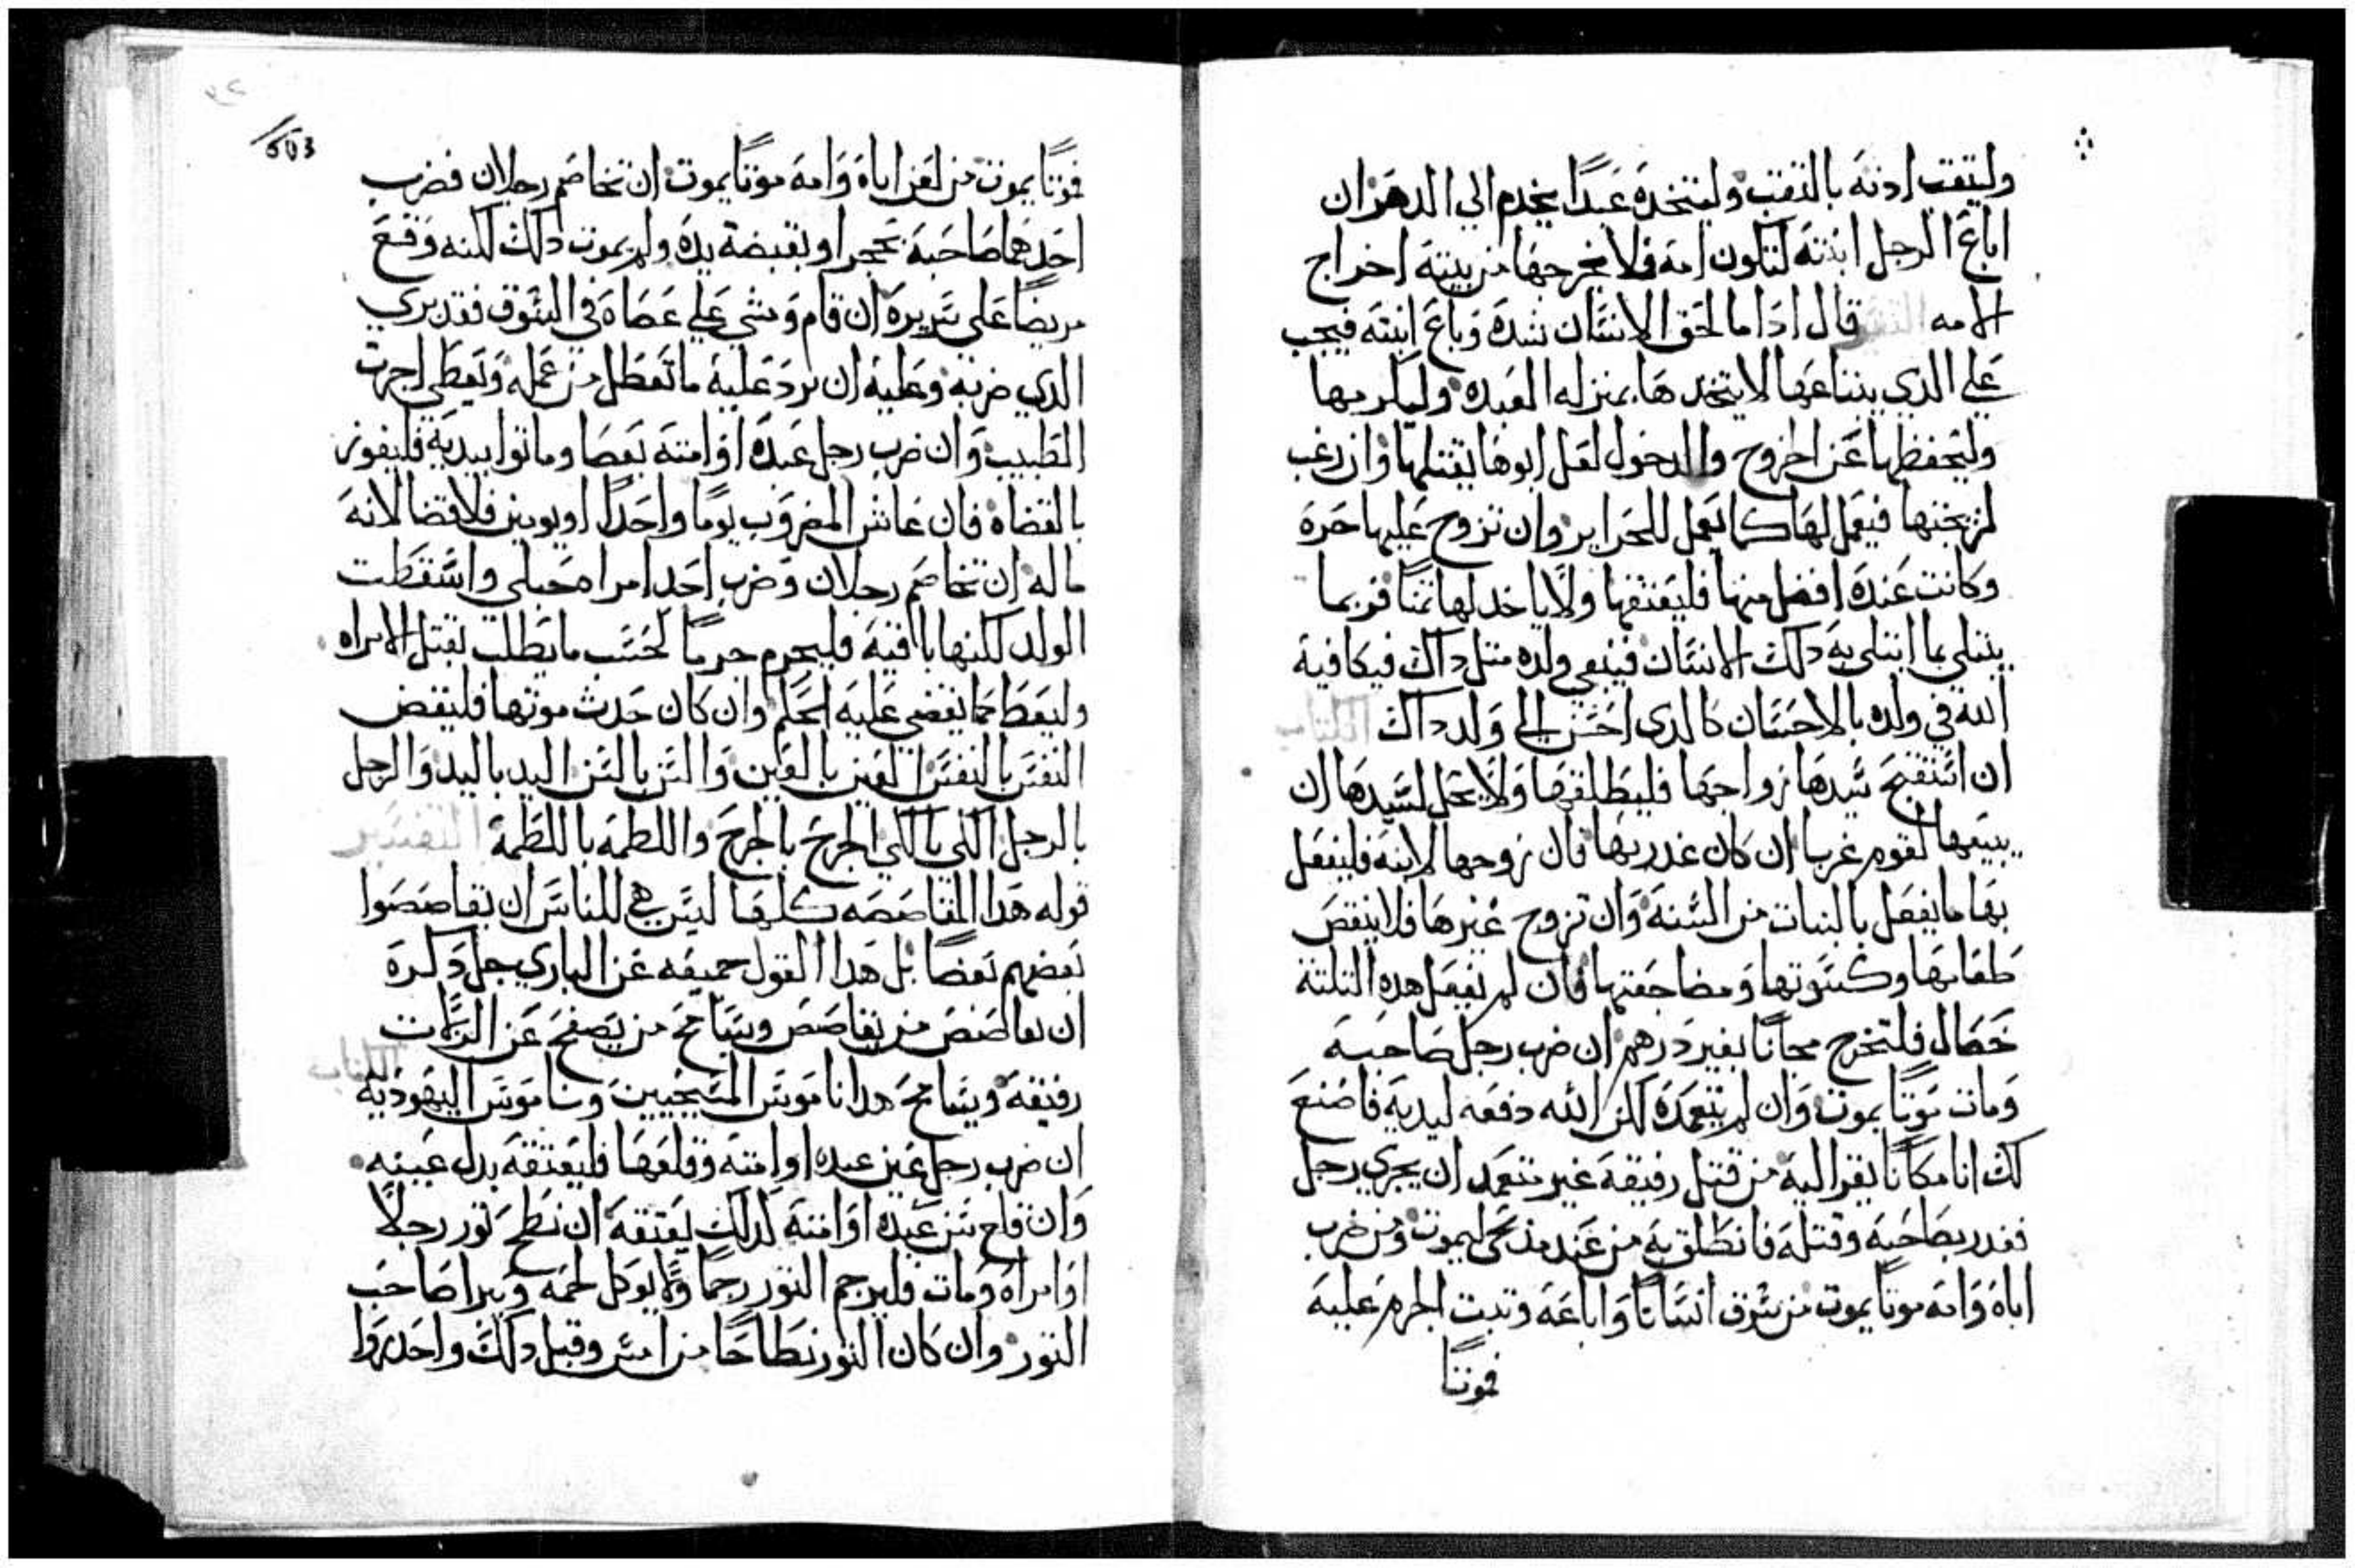 وليتقب ادنه بالتقب وليتخده عبدًا يخدم الي الدهر ان
اباع الرجل ابنته لتكون امة فلا يخرجها من بيته اخراج
الامه التفسير قال ادا ما لحق الانسان شده وباع ابنته فيجب
علي الدي يبتاعها الا يتخدها بمنزلة العبده وليكرمها
وليحفظها عن الخروج والدخول لعل ابوها يفتكها وان رغب
لم يخنها فيعمل لها كما يعمل للحراير وان تزوج عليها حرة
وكانت عنده افضل منها فليعتقها ولا ياخد لها تمنًا فربما
يبتلي بما ابتلي به دلك الانسان فينبغي ولده متل داك فيكافية
الله في ولده بالاحسان كالدي احسن الي ولد داك الكتاب
ان استقبح سيدها زواجها فليطلقها ولا يحل لسيدها ان
يبيعها لقوم غربا ان كان غدر بها فان زوجها لابنه فليفعل
بها ما يفعل بالبنات من السنه وان تزوج غيرها فلا ينقص
طعامها وكسوتها ومضاجعتها فان لم يفعل هده التلتة
خصال فلتخرج مجانًا بغير درهم ان ضرب رجل صاحبه
ومات موتًا يموت وان لم يتعمده لكن الله دفعه ليديه فاصنع
لك انا مكانًا يفر اليه من قتل رفيقه غير متعمد ان يجري رجل
فغدر بصاحبه وقتله فانطلق به من عند مدبحي ليموت ومن ضرب
اباه وامه موتًا يموت من سرق انسانًا واباعه وتبت الجرم عليه
فموتًا
603
فموتًا يموت من لعن اباه وامه موتًا يموت ان تخاصم رجلان فضرب
احدهما صاحبه بحجر او بقبضة يده ولم يموت داك لكنه وقع
مريضًا علي سريره ان قام ومشي علي عصاه في السوق فقد بري
الدي ضربه وعليه ان يرد عليه ما تعطل من عمله ويعطي اجرت
الطبيب وان ضرب رجل عبده او امته بعصا وماتوا بيديه فليفوز
بالقضاه فان عاش المضروب يومًا واحدًا او يومين فلا قضا لانه
ماله ان تخاصم رجلان وضرب احد امراه حبلي واسقطت
الولد لكنها باقيه فليجرم جرمًا لحسب ما يطلب بعتل الامراه
وليعط كما يقضي عليه الحكم وان كان حدث موتها فليقض
النفس بالنفس العين بالعين والسن بالسن اليد باليد والرجل
بالرجل الكي بالكي الجرح بالجرح واللطمة باللطمة التفسير
قوله هدا المقاصصه كلها ليس هي للناس ان يقاصصوا
بعضهم بعضًا بل هدا القول جميعه عن الباري جل دكره
ان يقاصص من يقاصص ويسامح من يصفح عن الزلات
رفيقه ويسامح هدا ناموس المسيحيين وناموس اليهوديه الكتاب
ان ضرب رجل عين عبده او امته وقلعها فليعتقه بدل عينه
وان قلع سن عبده او امته لدلك يعتقه ان نطح تور رجلاً
او امراه ومات فليرجم التور رجمًا ولا يوكل لحمه ويبرا صاحب
التور وان كان التور نطاحًا من امس وقبل دلك واحدروا